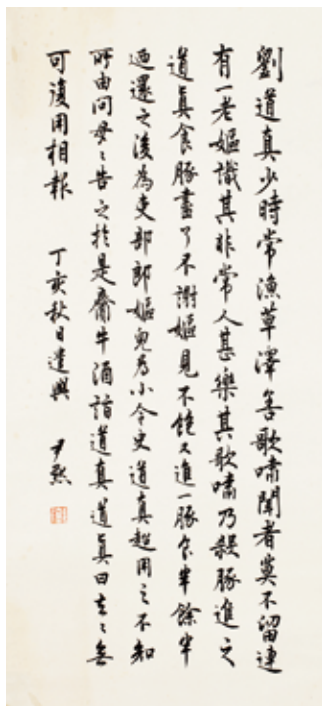 劉道真少時常漁草澤善歌嘯聞者莫不留連
有一老嫗識其非常人甚樂其歌嘯乃殺豚進之
道真食豚盡了不謝嫗見不飽又進一豚食半餘半
迺還之後為吏部郎嫗兒為小令史道真超用之不知
所由問母〻告之於是齎牛酒詣道真道真曰去〻無
可復用相報 丁亥秋日遣興 尹默